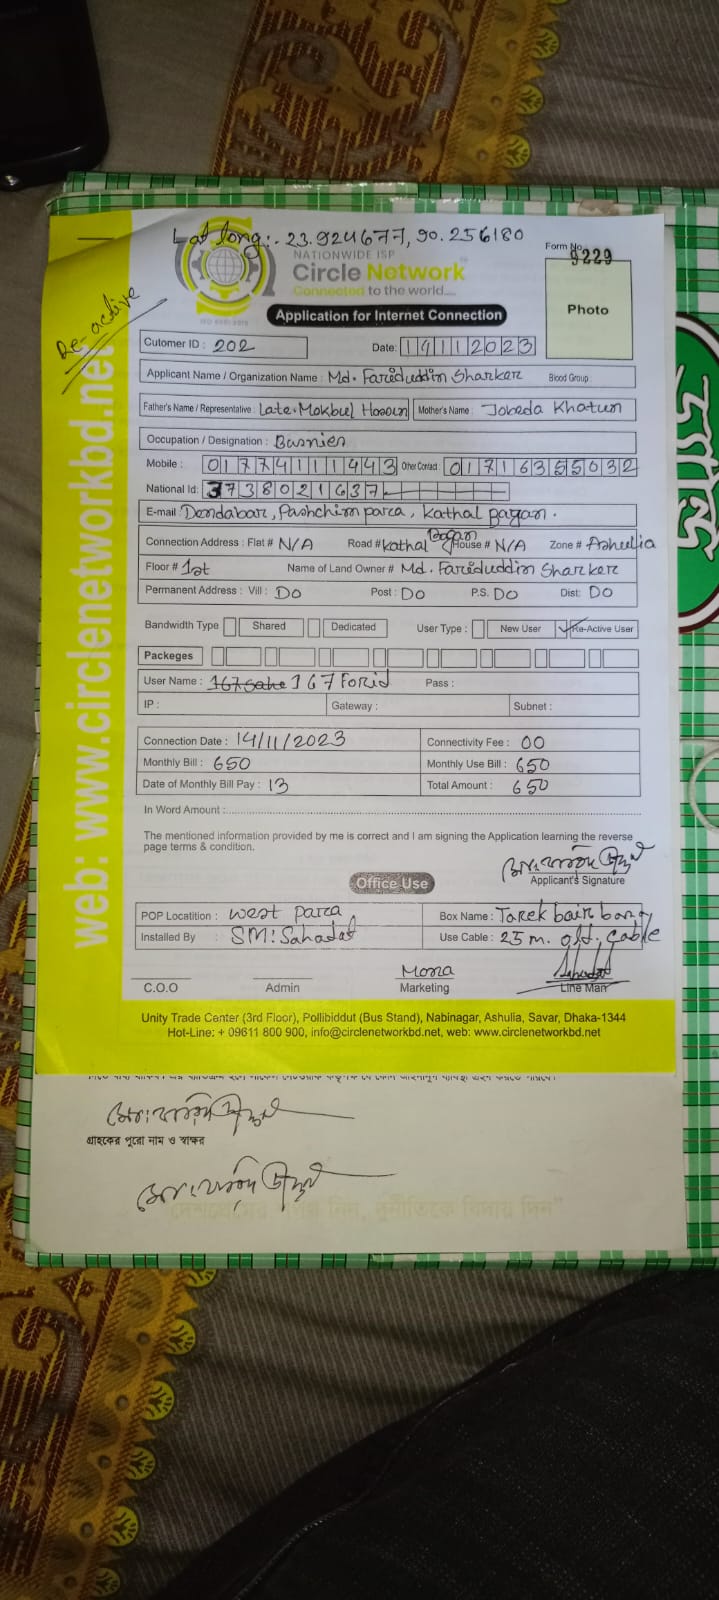 Lat long:- 23.924677, 90.256180
NATIONWIDE ISP
Form No.
9229
Circle Network
Connected to the world....
Re-active
Photo
Application for Internet Connection
Cutomer ID : 202 Date: 14112023
Applicant Name / Organization Name : Md. Fariduddin Sharker Blood Group :
Father's Name / Representative : Late. Mokbul Hossun Mother's Name : Jobeda Khatun
Occupation / Designation : Busnies
Mobile : 01774111443 Other Contact : 01716355032
National Id: 3738021637
E-mail Dendabar, Pashchim para, Kathal bagan.
Connection Address : Flat # N/A Road # Kathal Bagan House # N/A Zone # Ashulia
Floor # 1st Name of Land Owner # Md. Fariduddin Sharker
Permanent Address : Vill : Do Post : Do P.S. Do Dist: Do
Bandwidth Type Shared Dedicated User Type : New User Re-Active User
Packeges
User Name : 167 Forid Pass :
IP : Gateway : Subnet :
Connection Date : 14/11/2023 Connectivity Fee : 00
Monthly Bill : 650 Monthly Use Bill : 650
Date of Monthly Bill Pay : 13 Total Amount : 650
In Word Amount :
The mentioned information provided by me is correct and I am signing the Application learning the reverse
page terms & condition.
Applicant's Signature
Office Use
POP Locatition : west para Box Name : Tarek bair
Installed By : SM: Sahadat Use Cable : 25 m. oft. Cable
Mona
C.O.O Admin Marketing Line Man
Unity Trade Center (3rd Floor), Pollibiddut (Bus Stand), Nabinagar, Ashulia, Savar, Dhaka-1344
Hot-Line: + 09611 800 900, info@circlenetworkbd.net, web: www.circlenetworkbd.net
web: www.circlenetworkbd.net
গ্রাহকের পুরো নাম ও স্বাক্ষর